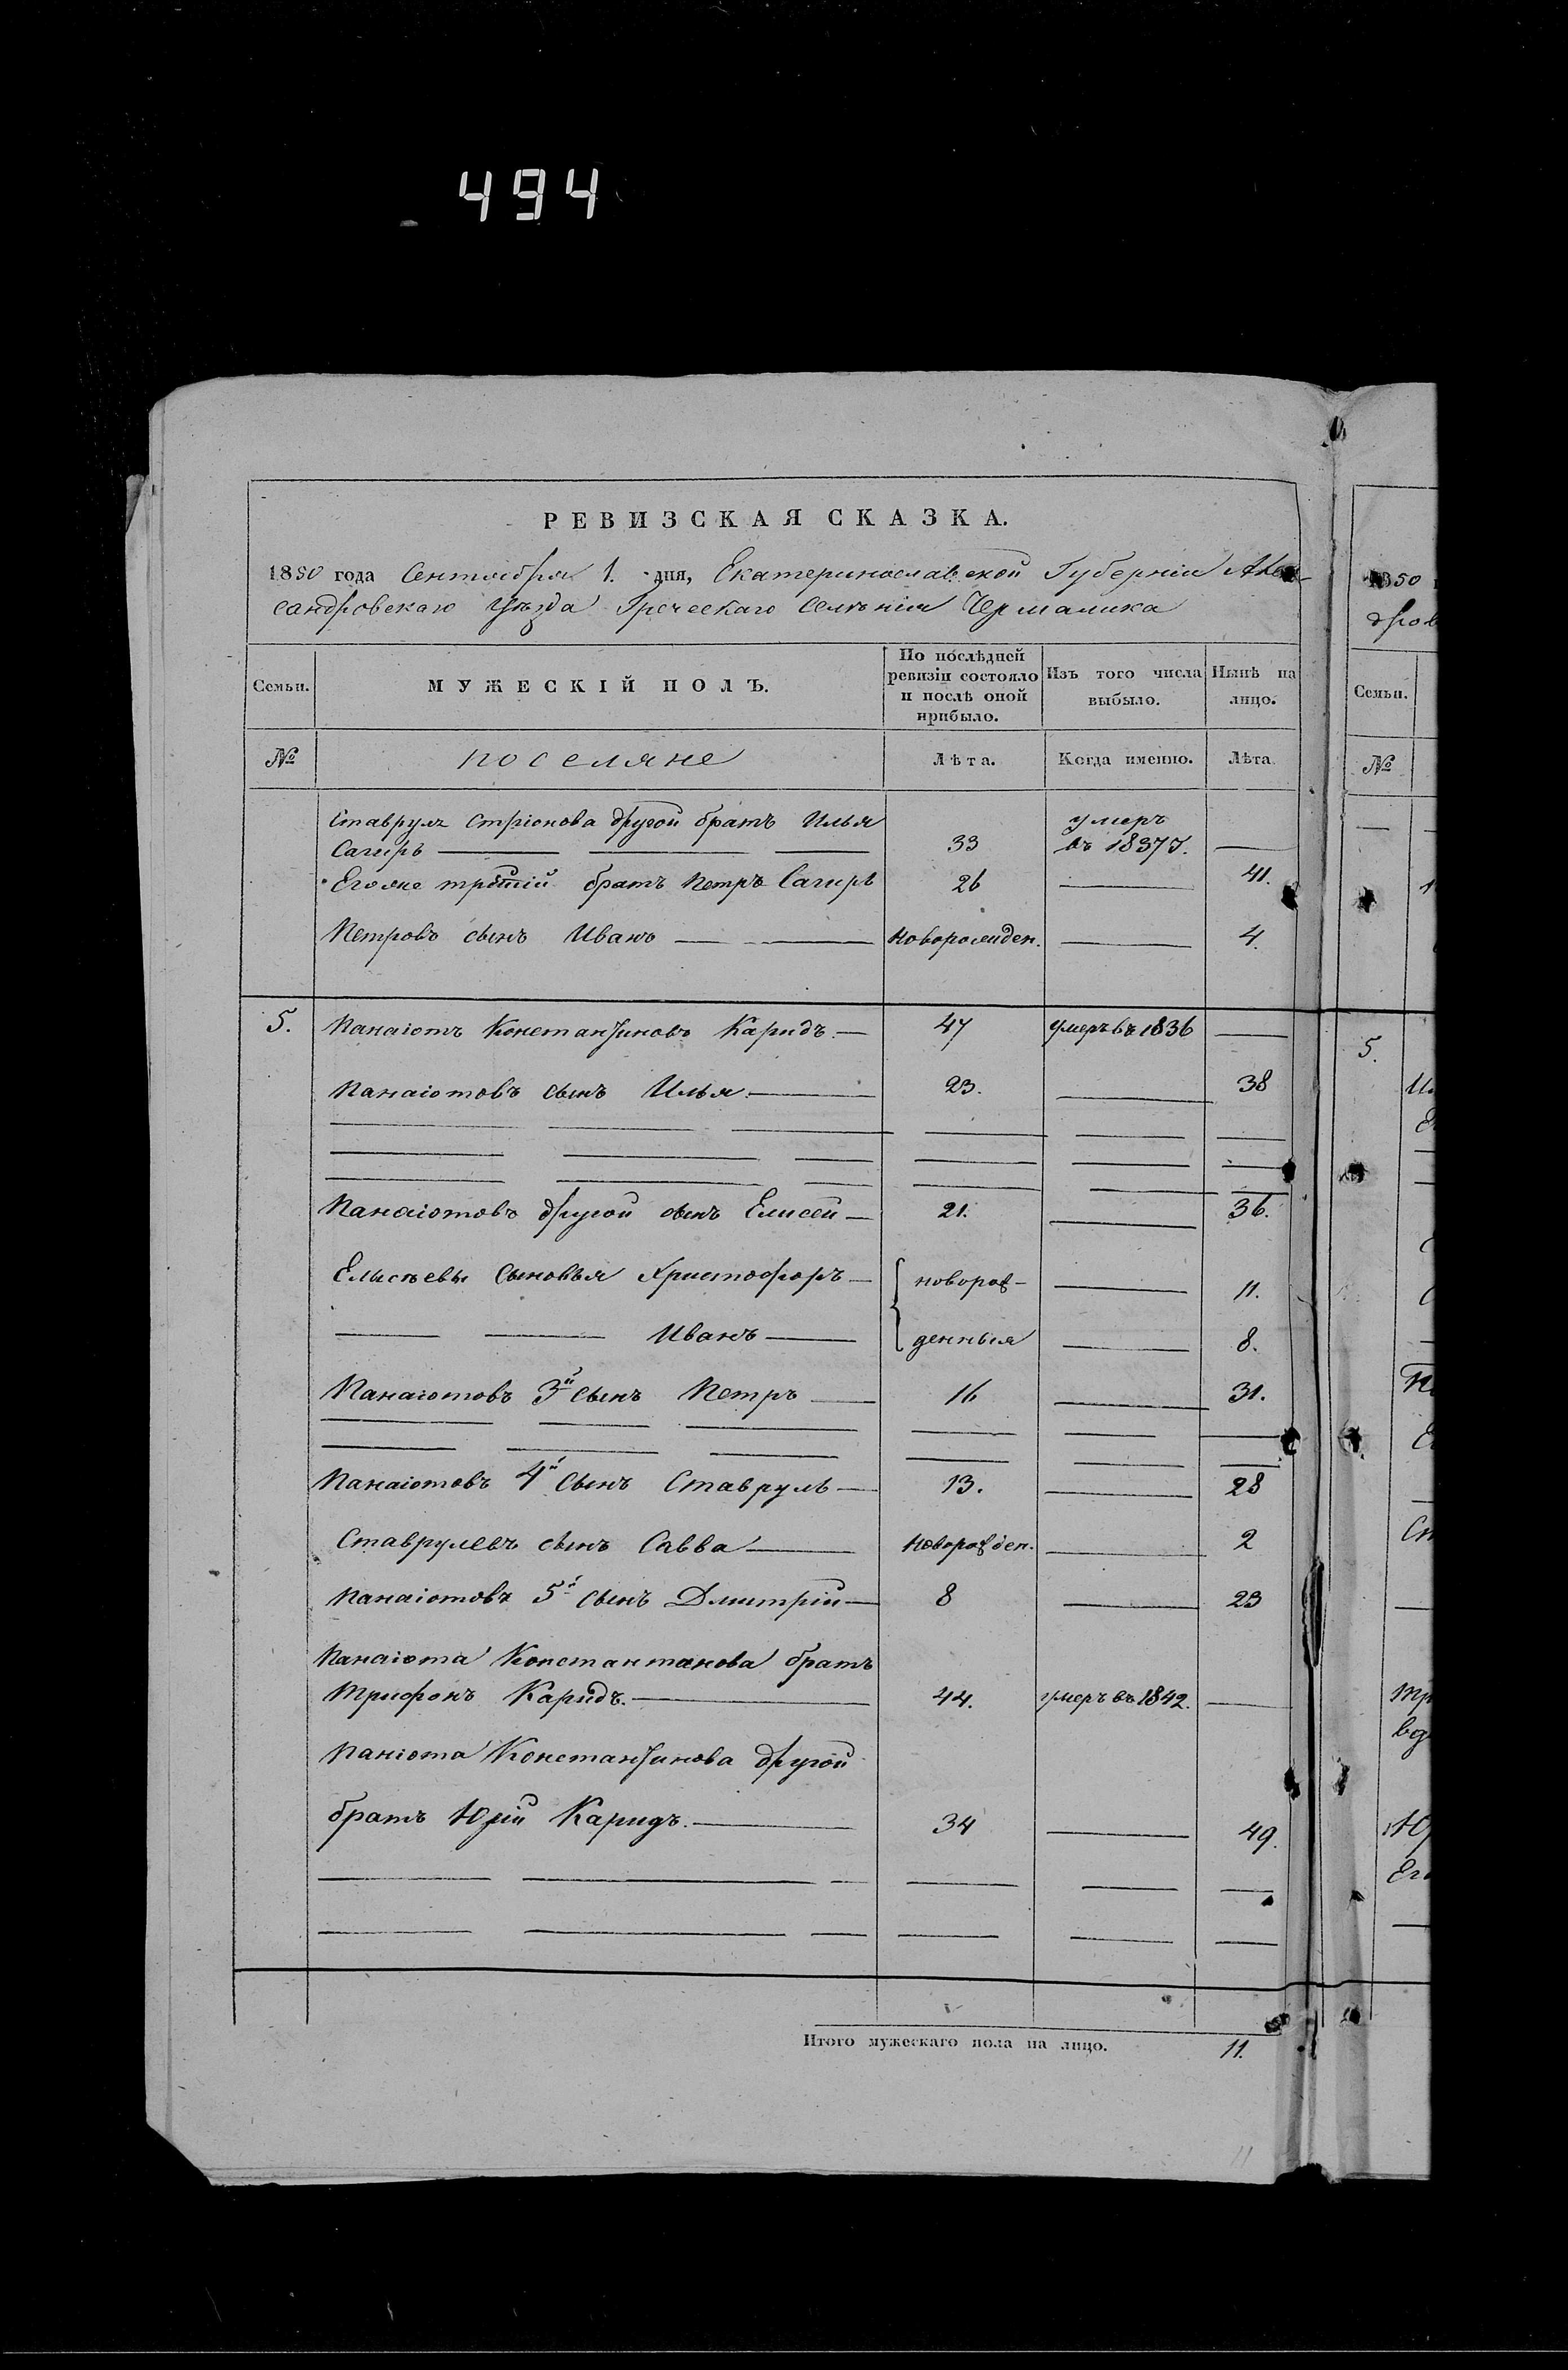 494
РЕВИЗСКАЯ СКАЗКА.
1850 года Сентября 1. дня, Екатеринославской Губернiи Алек-
сандровскаго Уѣзда Греческаго Селѣнiя Чермалика
Семьи. МУЖЕСКIЙ ПОЛЪ. По послѣдней ревизiи состояло и послѣ оной прибыло. Изъ того числа выбыло. Нынѣ на лицо.
№ поселяне Лѣта. Когда именно. Лѣта.
Ставруля Стрiонова другой братъ Илья умеръ
Сагиръ 33 въ 1837 г.
Егоже третiй братъ Петръ Сагиръ 26 41.
Петровъ сынъ Иванъ новорожден. 4.
5. Панаiотъ Константиновъ Каридъ. 47 умеръ въ 1836
Панаiотовъ сынъ Илья. 23. 38
Панаiотовъ другой сынъ Елисей 21. 36.
Елисѣевы сыновья Христофоръ новорож- 11.
Иванъ денныя 8.
Панаiотовъ 3й сынъ Петръ 16 31.
Панаiотовъ 4й сынъ Ставруль 13. 28
Ставрулевъ сынъ Савва новорожден. 2
Панаiотовъ 5й сынъ Дмитрiй 8 23
Панаiота Константинова братъ
Трифонъ Каридъ. 44. умеръ въ 1842.
Панiота Константинова другой
братъ Юрiй Каридъ. 34 49.
Итого мужескаго пола на лицо. 11.
1850
дров
Семьи.
№
5.
11